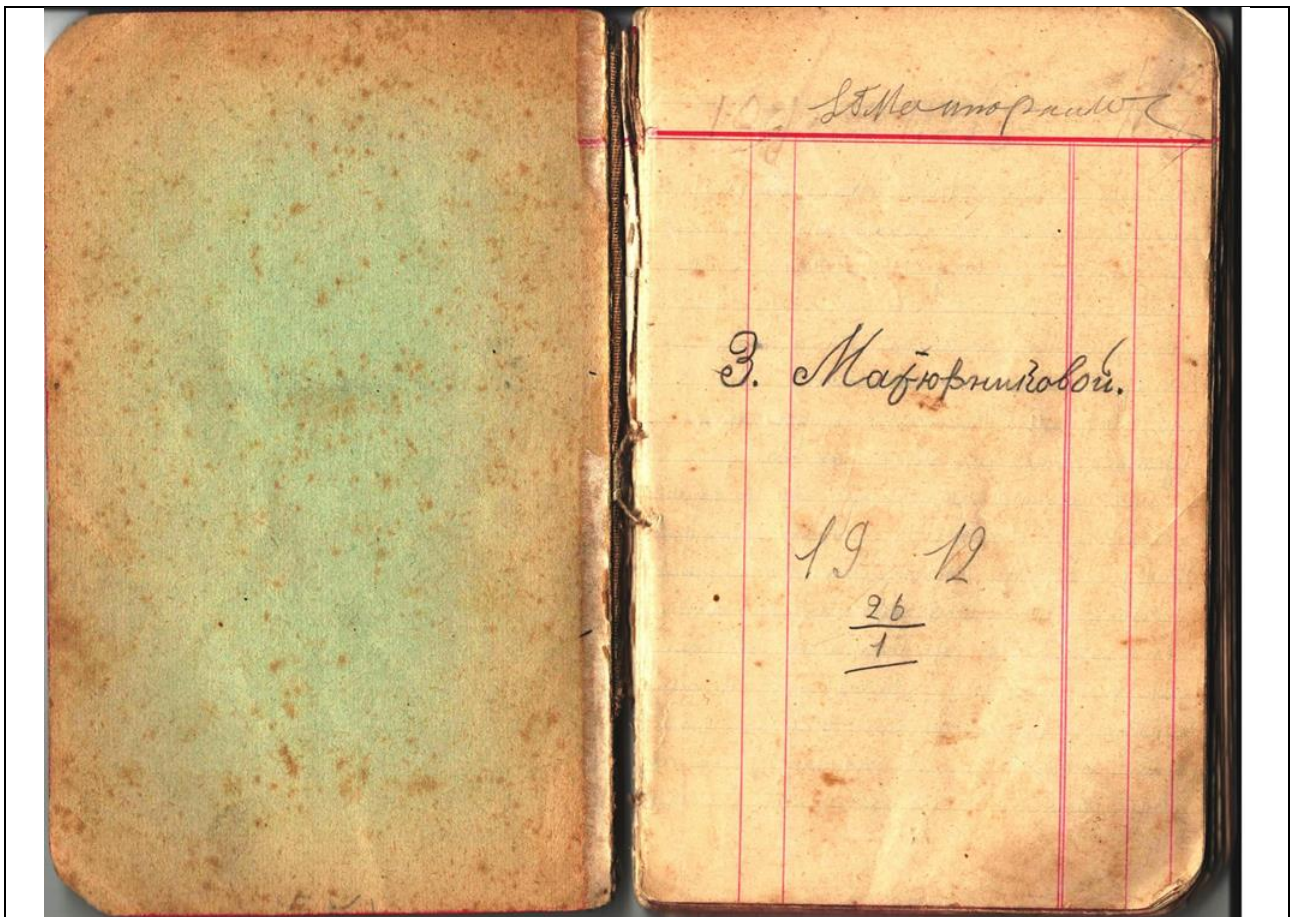 З. Матюрниковой.
19 12
26
1